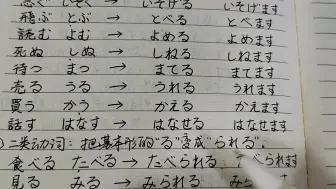 急ぐ いそぐ → いそげる いそげます
飛ぶ とぶ → とべる とべます
読む よむ → よめる よめます
死ぬ しぬ → しねる しねます
待つ まつ → まてる まてます
売る うる → うれる うれます
買う かう → かえる かえます
話す はなす → はなせる はなせます
二类动词: 把基本形的"る"变成"られる".
食べる たべる → たべられる たべられます
見る みる → みられる みられます